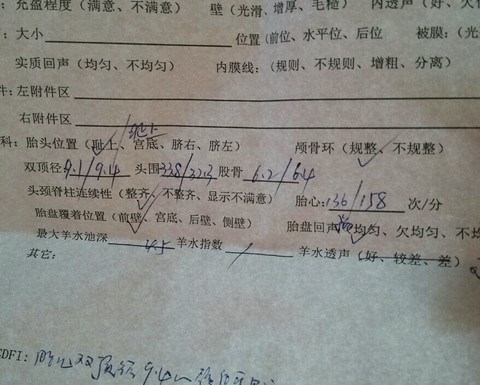 : 充盈程度（满意、不满意） 壁（光滑、增厚、毛糙） 内透声（好、欠
: 大小 位置（前位、水平位、后位 被膜:（光
实质回声（均匀、不均匀） 内膜线:（规则、不规则、增粗、分离）
件: 左附件区
右附件区
耻上
科: 胎头位置（耻上、宫底、脐右、脐左） 颅骨环（规整、不规整）
双顶径 9.1/9.4 头围 338/323 股骨 6.2/6.4
头颈脊柱连续性（整齐、不整齐、显示不满意） 胎心: 136/158 次/分
胎盘覆着位置（前壁、宫底、后壁、侧壁） 胎盘回声 均匀、欠均匀、不均
最大羊水池深 4.5 羊水指数 / 羊水透声（好、较差、差）
其它:
CDFI: 胎儿双顶径 9.4